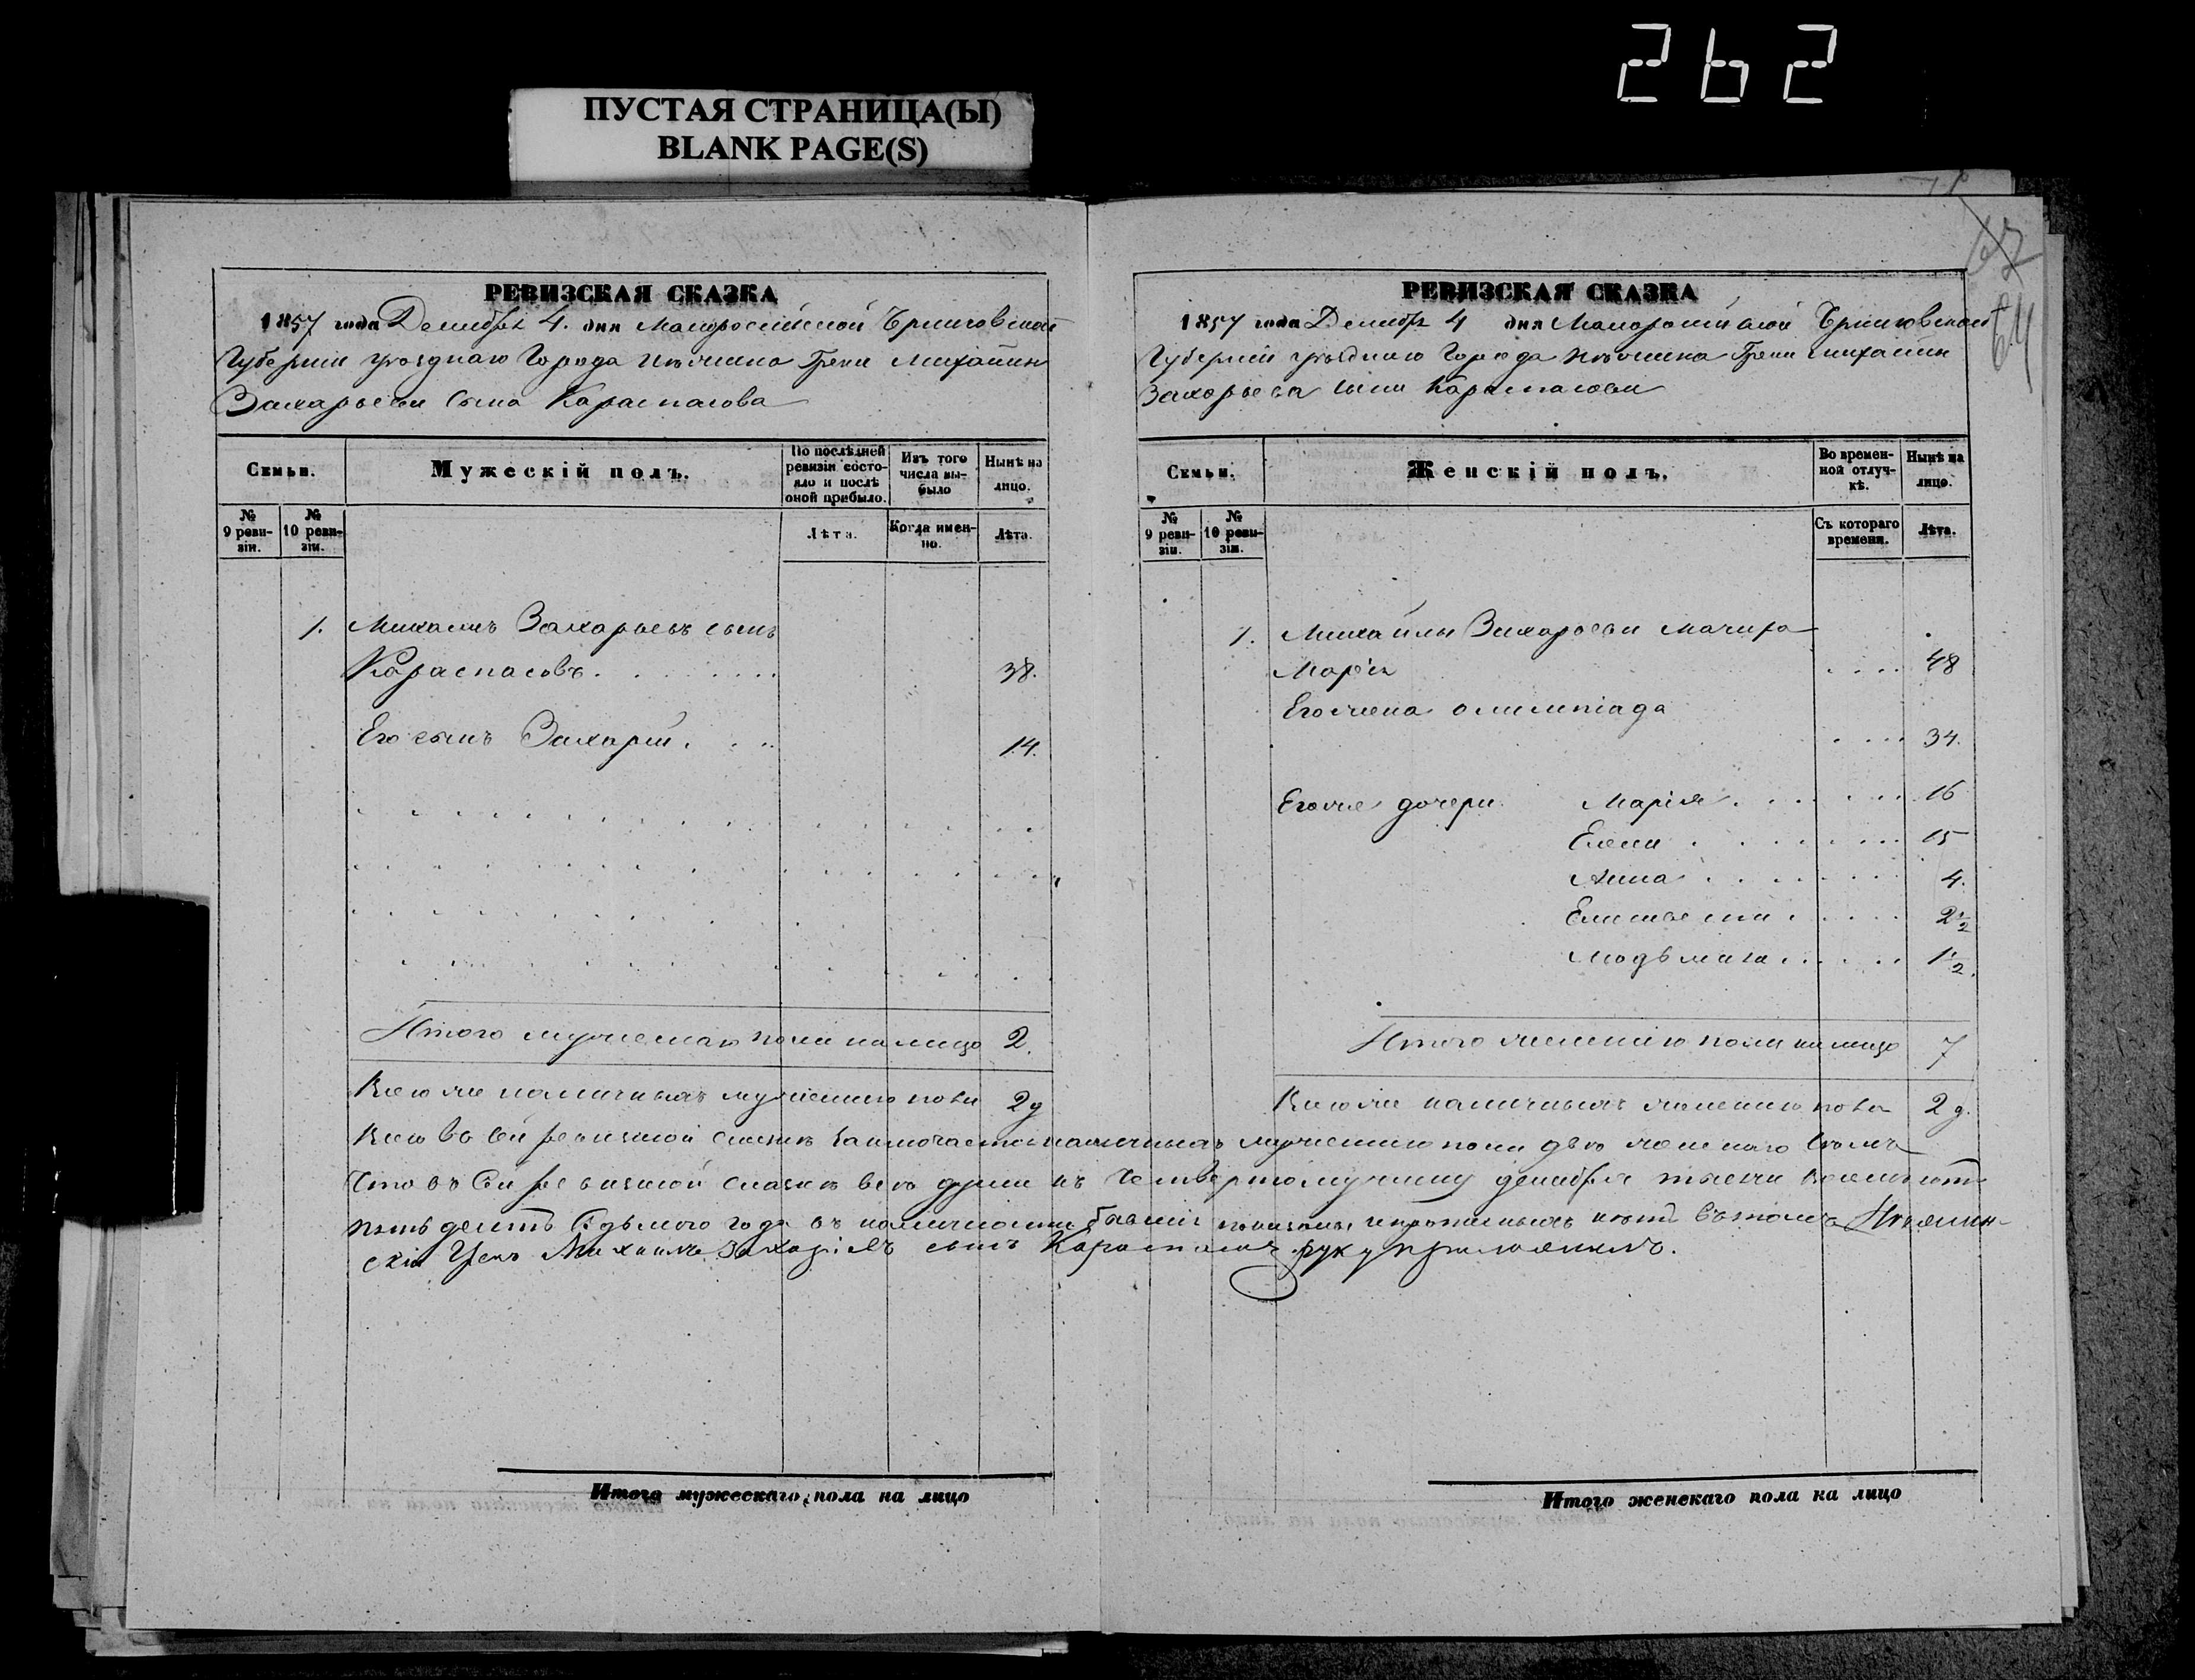 262
ПУСТАЯ СТРАНИЦА(Ы)
BLANK PAGE(S)
64
РЕВИЗСКАЯ СКАЗКА
1857 года Декабря 4. дня Малороссійской Черниговской
Губерніи уѣзднаго Города Нѣжина Грека Михаила
Захарьева Сына Караспасова
Семьи.
Мужескій полъ.
По послѣдней ревизіи состояло и послѣ оной прибыло.
Изъ того числа выбыло
Нынѣ на лицо.
№ 9 ревизіи.
№ 10 ревизіи.
Лѣта.
Когда именно.
Лѣта.
1. Михаилъ Захарьевъ сынъ
Караспасовъ. 38.
Его сынъ Захарій. 14.
Итого мужескаго пола на лицо 2.
Всего же наличныхъ мужескаго пола 2 д
РЕВИЗСКАЯ СКАЗКА
1857 года Декабря 4 дня Малороссійской Черниговской
Губерніи уѣзднаго Города Нѣжина Грека Михаила
Захарьева сына Караспасова
Семьи.
Женскій полъ.
Во временной отлучкѣ.
Нынѣ на лицо.
№ 9 ревизіи.
№ 10 ревизіи.
Съ котораго времени.
Лѣта.
1. Михаилы Захарьева мачиха
Марія 48
Его жена олимпіада
34.
Его же дочери Марія 16
Елена 15
Анна 4.
Елисавета 2 1/2
Людъмила 1 1/2.
Итого женскаго пола на лицо 7
Всего же наличныхъ женскаго пола 2 д.
Всего въ сей ревизкой сказкѣ заключается наличныхъ мужескаго пола двѣ женскаго
Что въ Сей ревизкой сказкѣ всѣ души къ Четвертому числу декабря тысяча восемсотъ
пять десятъ Седьмого года въ наличности бывшіе показаны и прописныхъ нѣтъ въ томъ Нѣжин-
скій Грекъ Михаилъ Захаріевъ сынъ Караспасовъ руку приложилъ.
Итого мужескаго пола на лицо
Итого женскаго пола на лицо